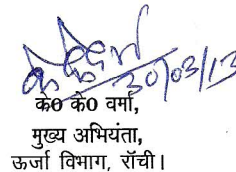 30/03/13
के0 के0 वर्मा,
मुख्य अभियंता,
ऊर्जा विभाग, रॉची।